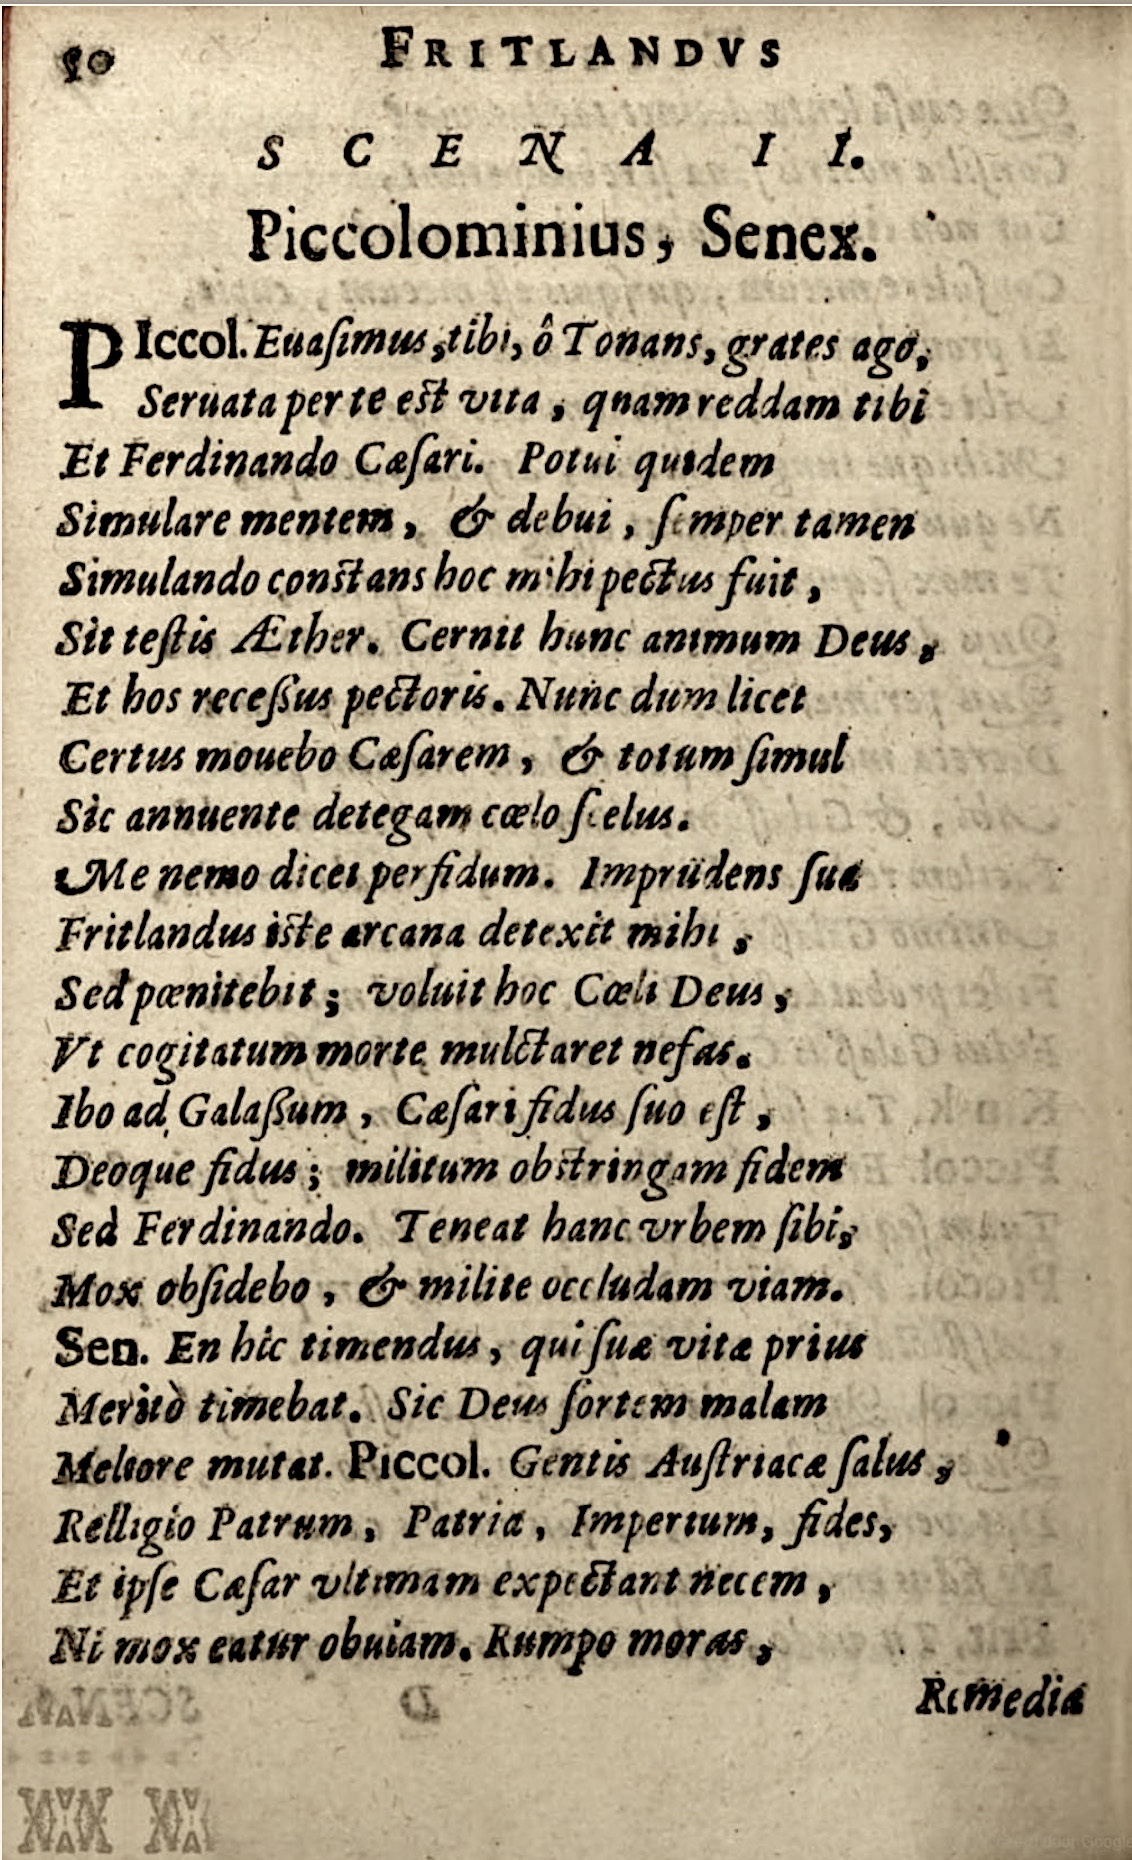 50 FRITLANDVS
SCENA II.
Piccolominius, Senex.
PIccol. Euaſimus, tibi, ô Tonans, grates ago,
Seruata per te eſt vita, quam reddam tibi
Et Ferdinando Cæſari. Potui quidem
Simulare mentem, & debui, ſemper tamen
Simulando conſtans hoc mihi pectus fuit,
Sit teſtis Æther. Cernit hunc animum Deus,
Et hos receſſus pectoris. Nunc dum licet
Certus mouebo Cæſarem, & totum ſimul
Sic annuente detegam cœlo ſcelus.
Me nemo dicet perfidum. Imprudens ſua
Fritlandus iſte arcana detexit mihi,
Sed pœnitebit; voluit hoc Cœli Deus,
Vt cogitatum morte mulctaret nefas.
Ibo ad Galaſſum, Cæſari fidus ſuo eſt,
Deoque fidus; militum obſtringam fidem
Sed Ferdinando. Teneat hanc vrbem ſibi,
Mox obſidebo, & milite occludam viam.
Sen. En hic timendus, qui ſuæ vitæ prius
Meritò timebat. Sic Deus ſortem malam
Meliore mutat. Piccol. Gentis Auſtriacæ ſalus,
Relligio Patrum, Patria, Imperium, fides,
Et ipſe Cæſar vltimam expectant necem,
Ni mox eatur obuiam. Rumpo moras,
Remedia